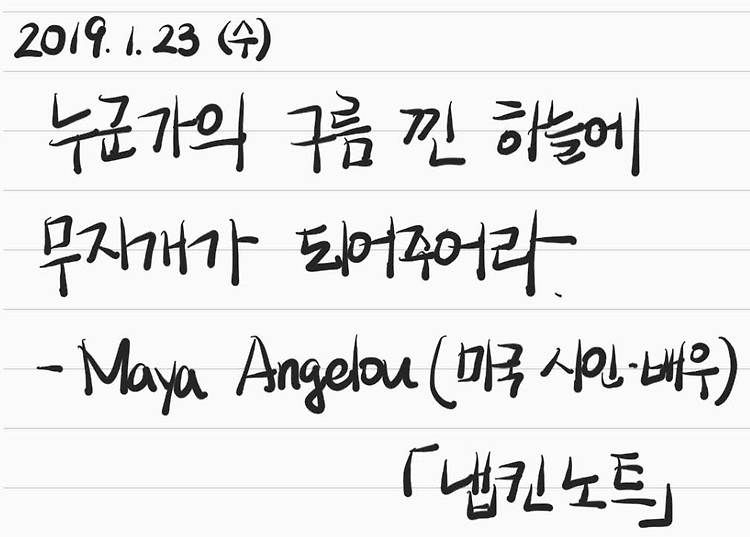 2019. 1. 23 (수)
누군가의 구름 낀 하늘에
무지개가 되어주어라.
- Maya Angelou (미국 시인·배우)
「냅킨노트」